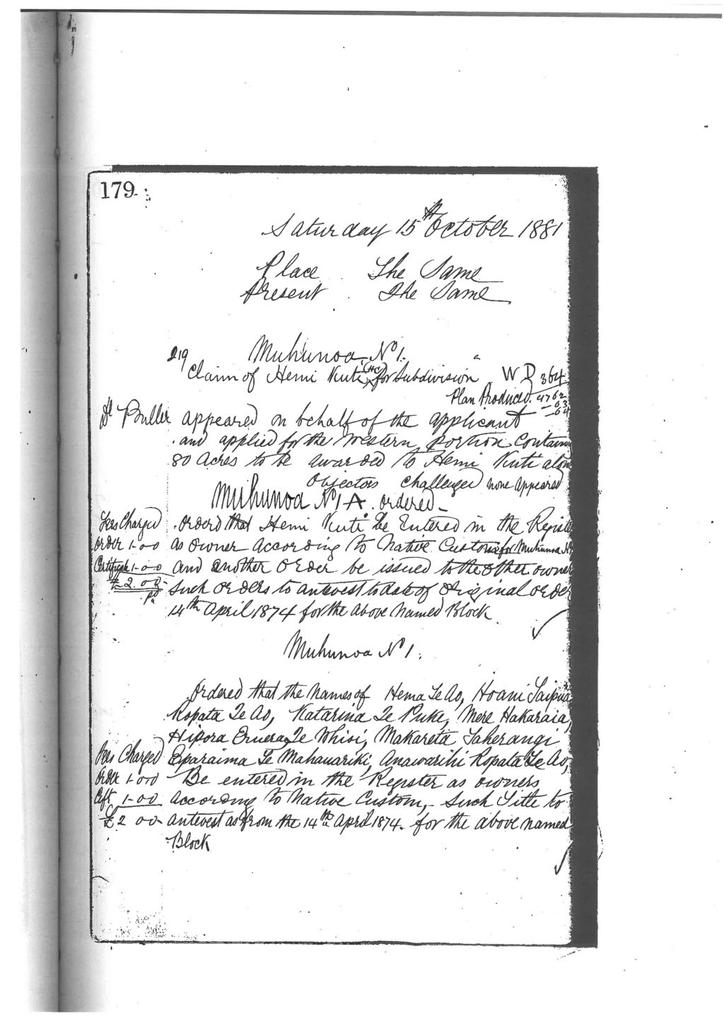 179
Saturday 15th October 1881
Place The Same
Present The Same
219 Muhunoa No 1.
Claim of Hemi Kuti for Subdivision W D 364
Plan Produced 4762
Dr Buller appeared on behalf of the applicant
and applied for the Western portion Contain
80 Acres to be awarded to Hemi Kuti alon
Objectors Challenged none appeared
Muhunoa No 1A. ordered
Fees Charged Ordered that Hemi Kuti be Entered in the Regist
Order 1-0-0 as owner According to Native Custom for Muhunoa No
Certificate 1-0-0 and another Order be issued to the other owne
£2.0.0 Such orders to antevest to date of Original orde
pd. 14th April 1874 for the above Named Block
Muhunoa No 1.
Ordered that the names of Hema Te Ao, Hoani Taipua
Ropata Te Ao, Katarina Te Puke, Mere Hakaraia,
Hipora Eruera Te Whiwi, Makareta Taherangi
Fees Charged Eparaima Te Mahauariki, Anawarihi Ropata Te Ao,
Order 1.0.0 Be entered in the Register as owners
Cft. 1-0-0 according to Native Custom, Such Title to
£2 0-0 antevest as from the 14th April 1874 for the above named
Block